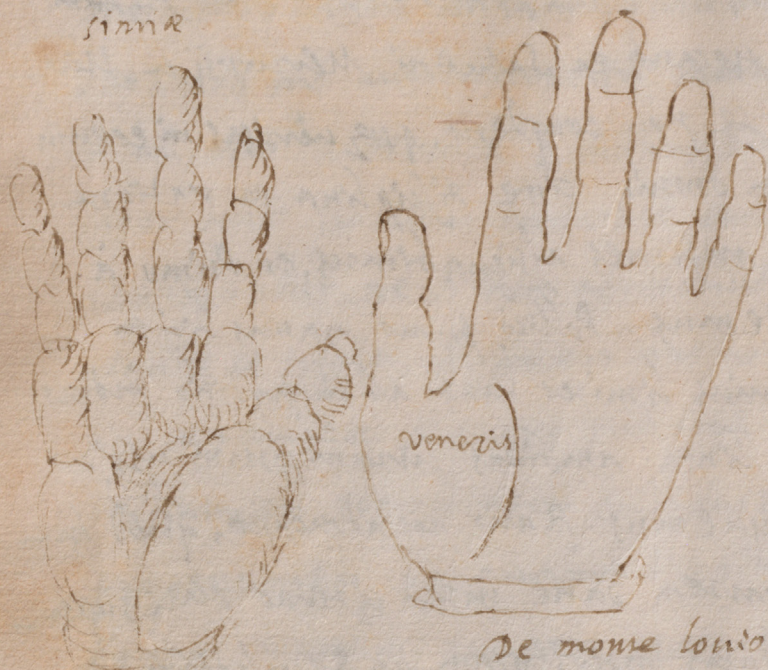 simiæ
veneris
De monte louis